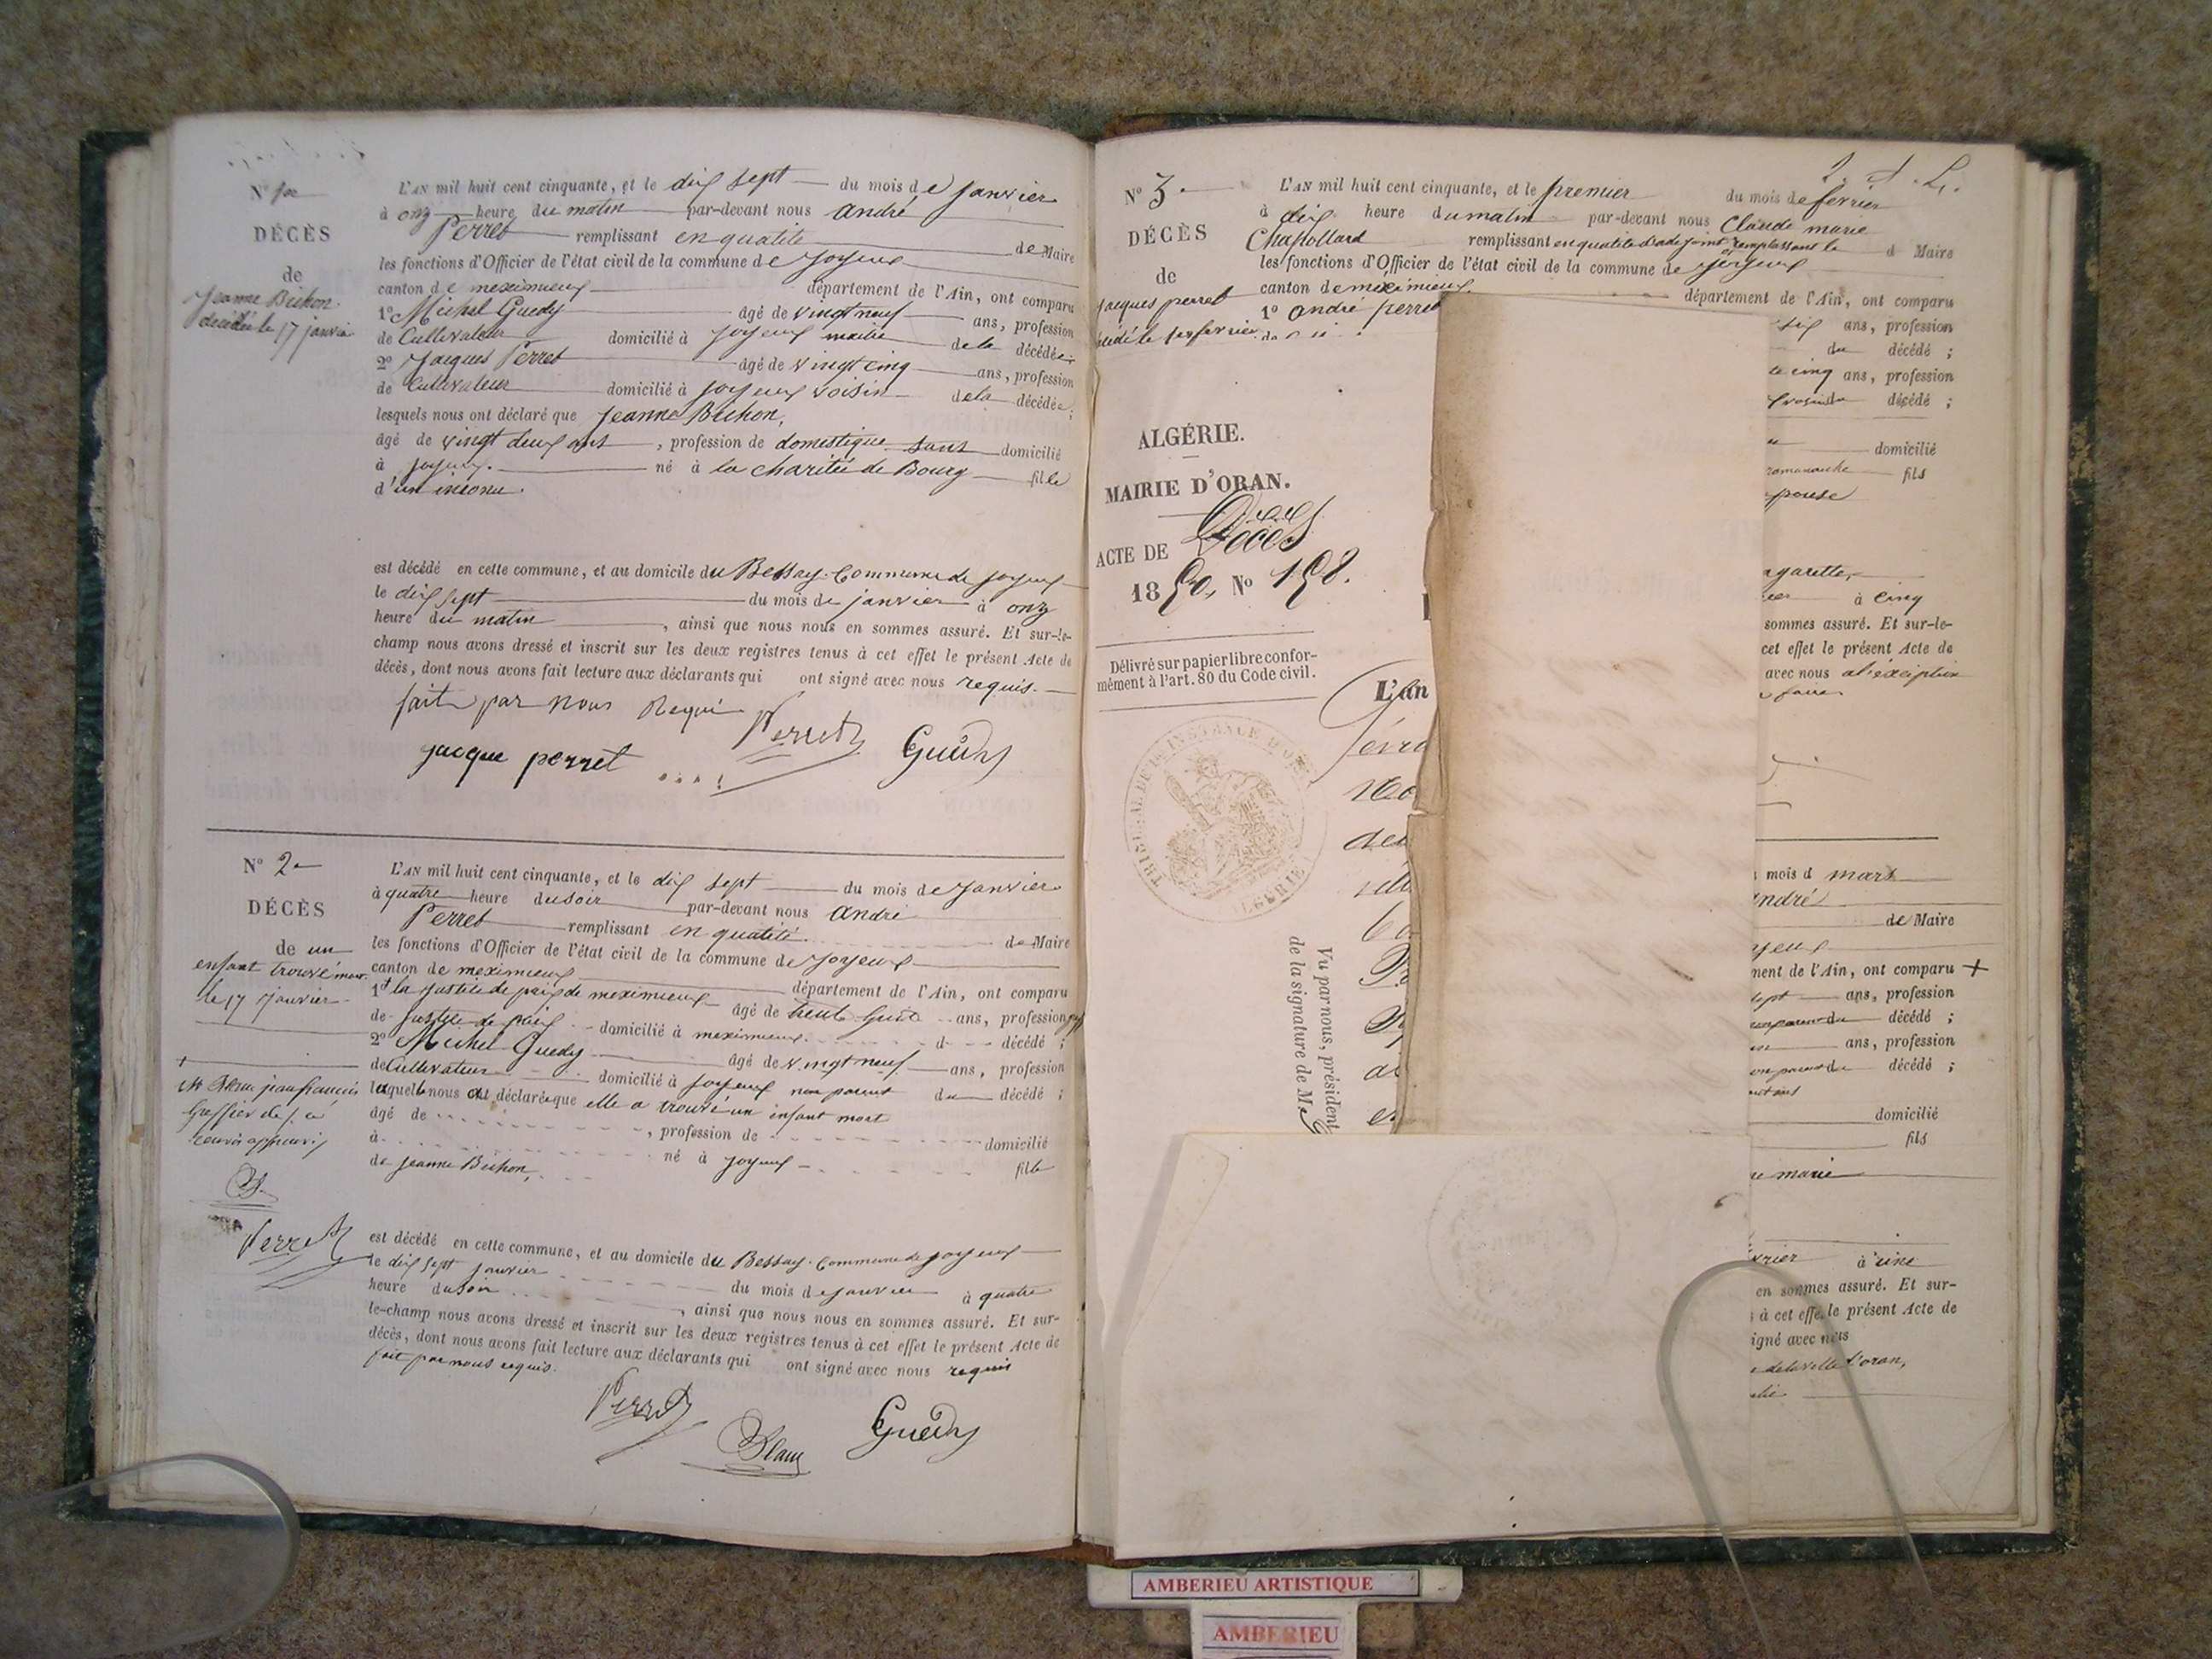 DÉCÈS
de
Jeanne Bichon
décédée le 17 janvier
L'AN mil huit cent cinquante, et le dix sept du mois de janvier
à onz heure du matin par-devant nous andré
Perret remplissant en qualité de Maire
les fonctions d'Officier de l'état civil de la commune de joyeux
canton de meximieux département de l'Ain, ont comparu
1° Michel Guedy âgé de vingt neuf ans, profession
de Cultivateur domicilié à joyeux maitre de la décédée
2° Jacques Perret âgé de vingt cinq ans, profession
de Cultivateur domicilié à joyeux voisin de la décédée;
lesquels nous ont déclaré que jeanne Bichon,
âgé de vingt deux ans, profession de domestique sans domicilié
à joyeux. né à la charitée de Bourg fille
d'un inconu.
est décédé en cette commune, et au domicile du Bessay Commune de joyeux
le dix sept du mois de janvier à onz
heure du matin, ainsi que nous nous en sommes assuré. Et sur-le-
champ nous avons dressé et inscrit sur les deux registres tenus à cet effet le présent Acte de
décès, dont nous avons fait lecture aux déclarants qui ont signé avec nous requis.
fait par nous Requi
jacque perret Perret Guedy
N° 2
DÉCÈS
de un
enfant trouvé mort
le 17 janvier
L'AN mil huit cent cinquante, et le dix sept du mois de janvier
à quatre heure du soir par-devant nous andré
Perret remplissant en qualité de Maire
les fonctions d'Officier de l'état civil de la commune de joyeux
canton de meximieux département de l'Ain, ont comparu
1° la justice de paix de meximieux âgé de trente huit ans, profession
de justice de paix domicilié à meximieux d décédé;
2° Michel Guedy âgé de vingt neuf ans, profession
de Cultivateur domicilié à joyeux non parent du décédé;
laquelle nous a déclarée que elle a trouvé un enfant mort
âgé de, profession de
à domicilié
né à joyeux fille
de jeanne Bichon,
+
Mr Blanc jean françois
Greffier
Perret
est décédé en cette commune, et au domicile du Bessay Commune de joyeux
le dix sept janvier du mois de janvier à quatre
heure du soir, ainsi que nous nous en sommes assuré. Et sur-
le-champ nous avons dressé et inscrit sur les deux registres tenus à cet effet le présent Acte de
décès, dont nous avons fait lecture aux déclarants qui ont signé avec nous requis
fait par nous requis.
Perret Blanc Guedy
N° 3
DÉCÈS
de
Jacques perret
L'AN mil huit cent cinquante, et le premier du mois de fevrier
à dix heure du matin par-devant nous Claude marie
Chapollard remplissant en qualité d'adjoint remplassant le d Maire
les fonctions d'Officier de l'état civil de la commune de joyeux
canton de meximieux département de l'Ain, ont comparu
1° andré perret
six ans, profession
du décédé;
cinq ans, profession
décédé;
domicilié
fils
à cinq
sommes assuré. Et sur-le-
cet effet le présent Acte de
avec nous
ALGÉRIE.
MAIRIE D'ORAN.
ACTE DE Décès
1850, N° 158.
Délivré sur papier libre confor-
mément à l'art. 80 du Code civil.
L'an
TRIBUNAL DE 1RE INSTANCE D'ORAN
ALGÉRIE
Vu par nous, président
de la signature de M.
mois d mars
andré
de Maire
ment de l'Ain, ont comparu +
sept ans, profession
décédé;
ans, profession
décédé;
domicilié
fils
marie
à une
en sommes assuré. Et sur-
à cet effet le présent Acte de
igné avec nous
de la ville d'oran,
AMBERIEU ARTISTIQUE
AMBERIEU